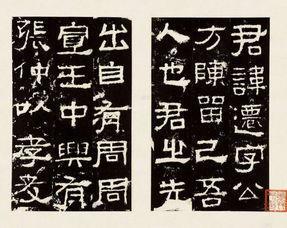 君諱遷字公
方陳留己吾
人也君之先
出自有周周
宣王中興有
張仲以孝友